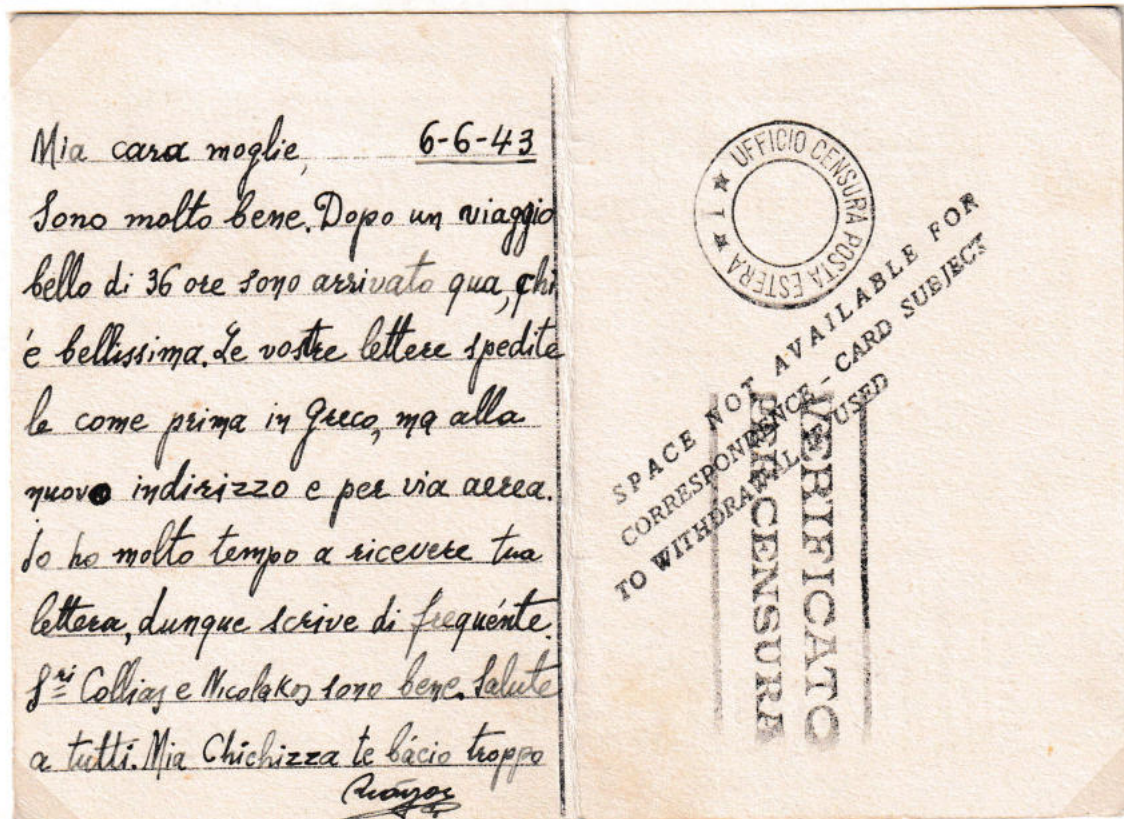 Mia cara moglie, 6-6-43
Sono molto bene. Dopo un viaggio
bello di 36 ore sono arrivato qua, chi
é bellissima. Le vostre lettere spedite
le come prima in Greco, ma alla
nuovo indirizzo e per via aerea.
Io ho molto tempo a ricevere tua
lettera, dunque scrive di frequénte.
Sri Collias e Nicolakos sono bene. Salute
a tutti. Mia Chichizza te bácio troppo
★ UFFICIO CENSURA POSTA ESTERA ★ I
SPACE NOT AVAILABLE FOR
CORRESPONDENCE - CARD SUBJECT
TO WITHDRAWAL IF USED
VERIFICATO
PER CENSURA